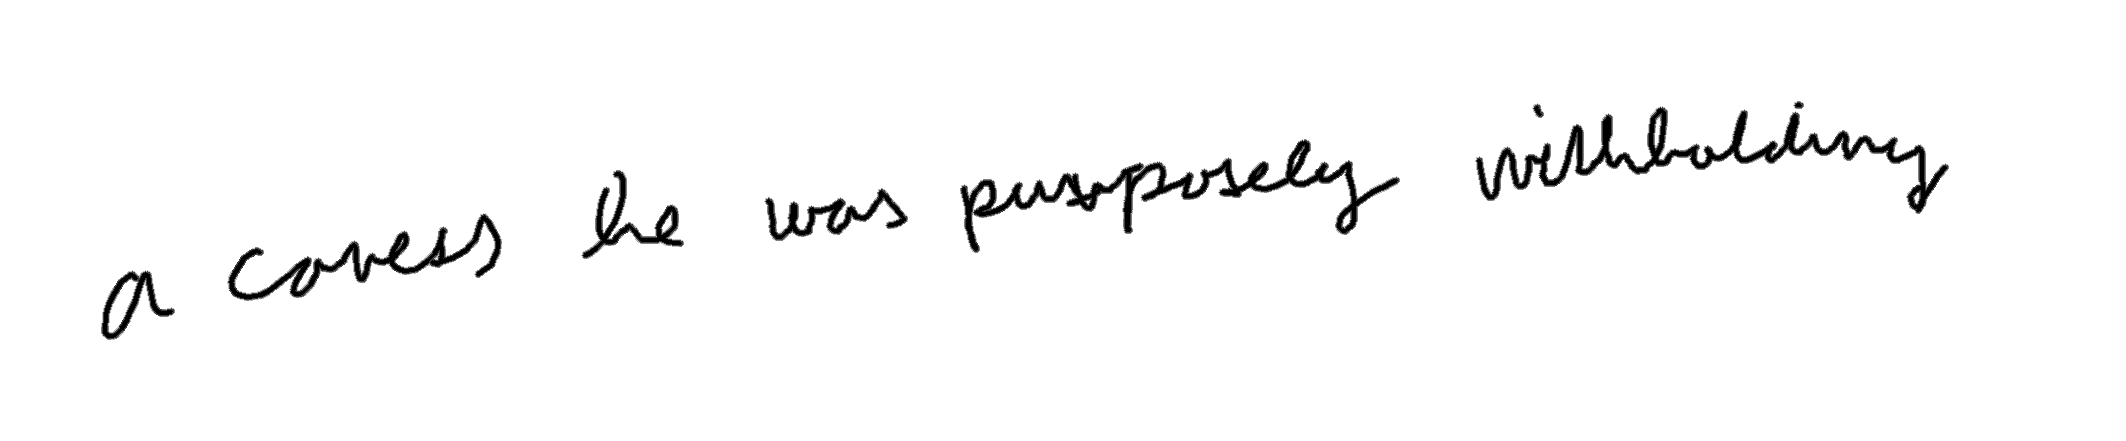 a caress he was purposely withholding